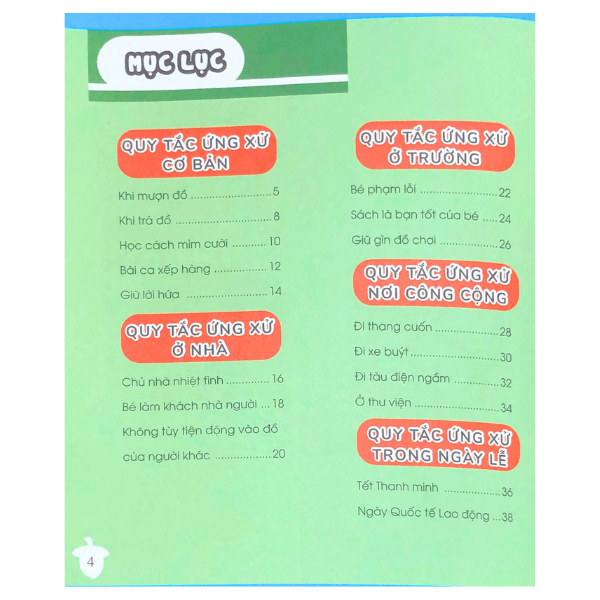 MỤC LỤC
QUY TẮC ỨNG XỬ
CƠ BẢN
Khi mượn đồ ..................... 5
Khi trả đồ ......................... 8
Học cách mỉm cười ........... 10
Bài ca xếp hàng ............... 12
Giữ lời hứa ..................... 14
QUY TẮC ỨNG XỬ
Ở NHÀ
Chủ nhà nhiệt tình ............ 16
Bé làm khách nhà người ... 18
Không tùy tiện động vào đồ
của người khác ................ 20
QUY TẮC ỨNG XỬ
Ở TRƯỜNG
Bé phạm lỗi .................... 22
Sách là bạn tốt của bé ..... 24
Giữ gìn đồ chơi ............... 26
QUY TẮC ỨNG XỬ
NƠI CÔNG CỘNG
Đi thang cuốn .................. 28
Đi xe buýt ....................... 30
Đi tàu điện ngầm ............. 32
Ở thư viện ...................... 34
QUY TẮC ỨNG XỬ
TRONG NGÀY LỄ
Tết Thanh minh ................ 36
Ngày Quốc tế Lao động ... 38
4